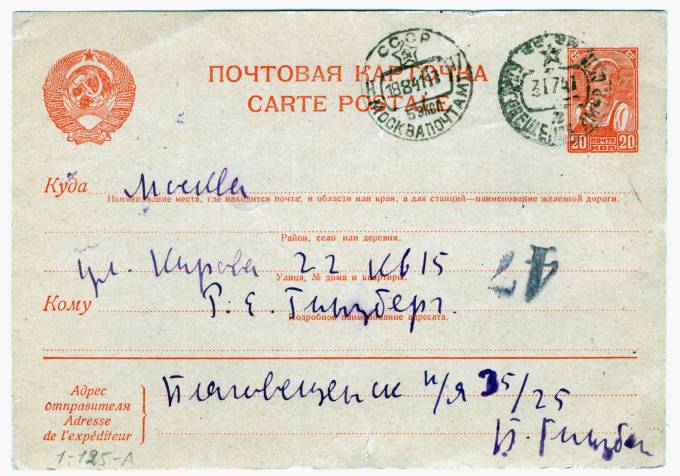 ПОЧТОВАЯ КАРТОЧКА
CARTE POSTALE
СССР
МОСКВА ПОЧТАМТ
ПОЧТА
20 КОП 20
Куда Москва
Наименование места, где находится почта, и области или края, а для станций—наименование железной дороги.
Район, село или деревня.
ул. Кирова 22 кв 15
Улица, № дома и квартиры.
47
Кому Р. Е. Гинзберг.
Подробное наименование адресата.
Адрес
отправителя
Adresse
de l'expéditeur
Благовещенск п/я 35/25
Б. Гинзбе
1-125-A